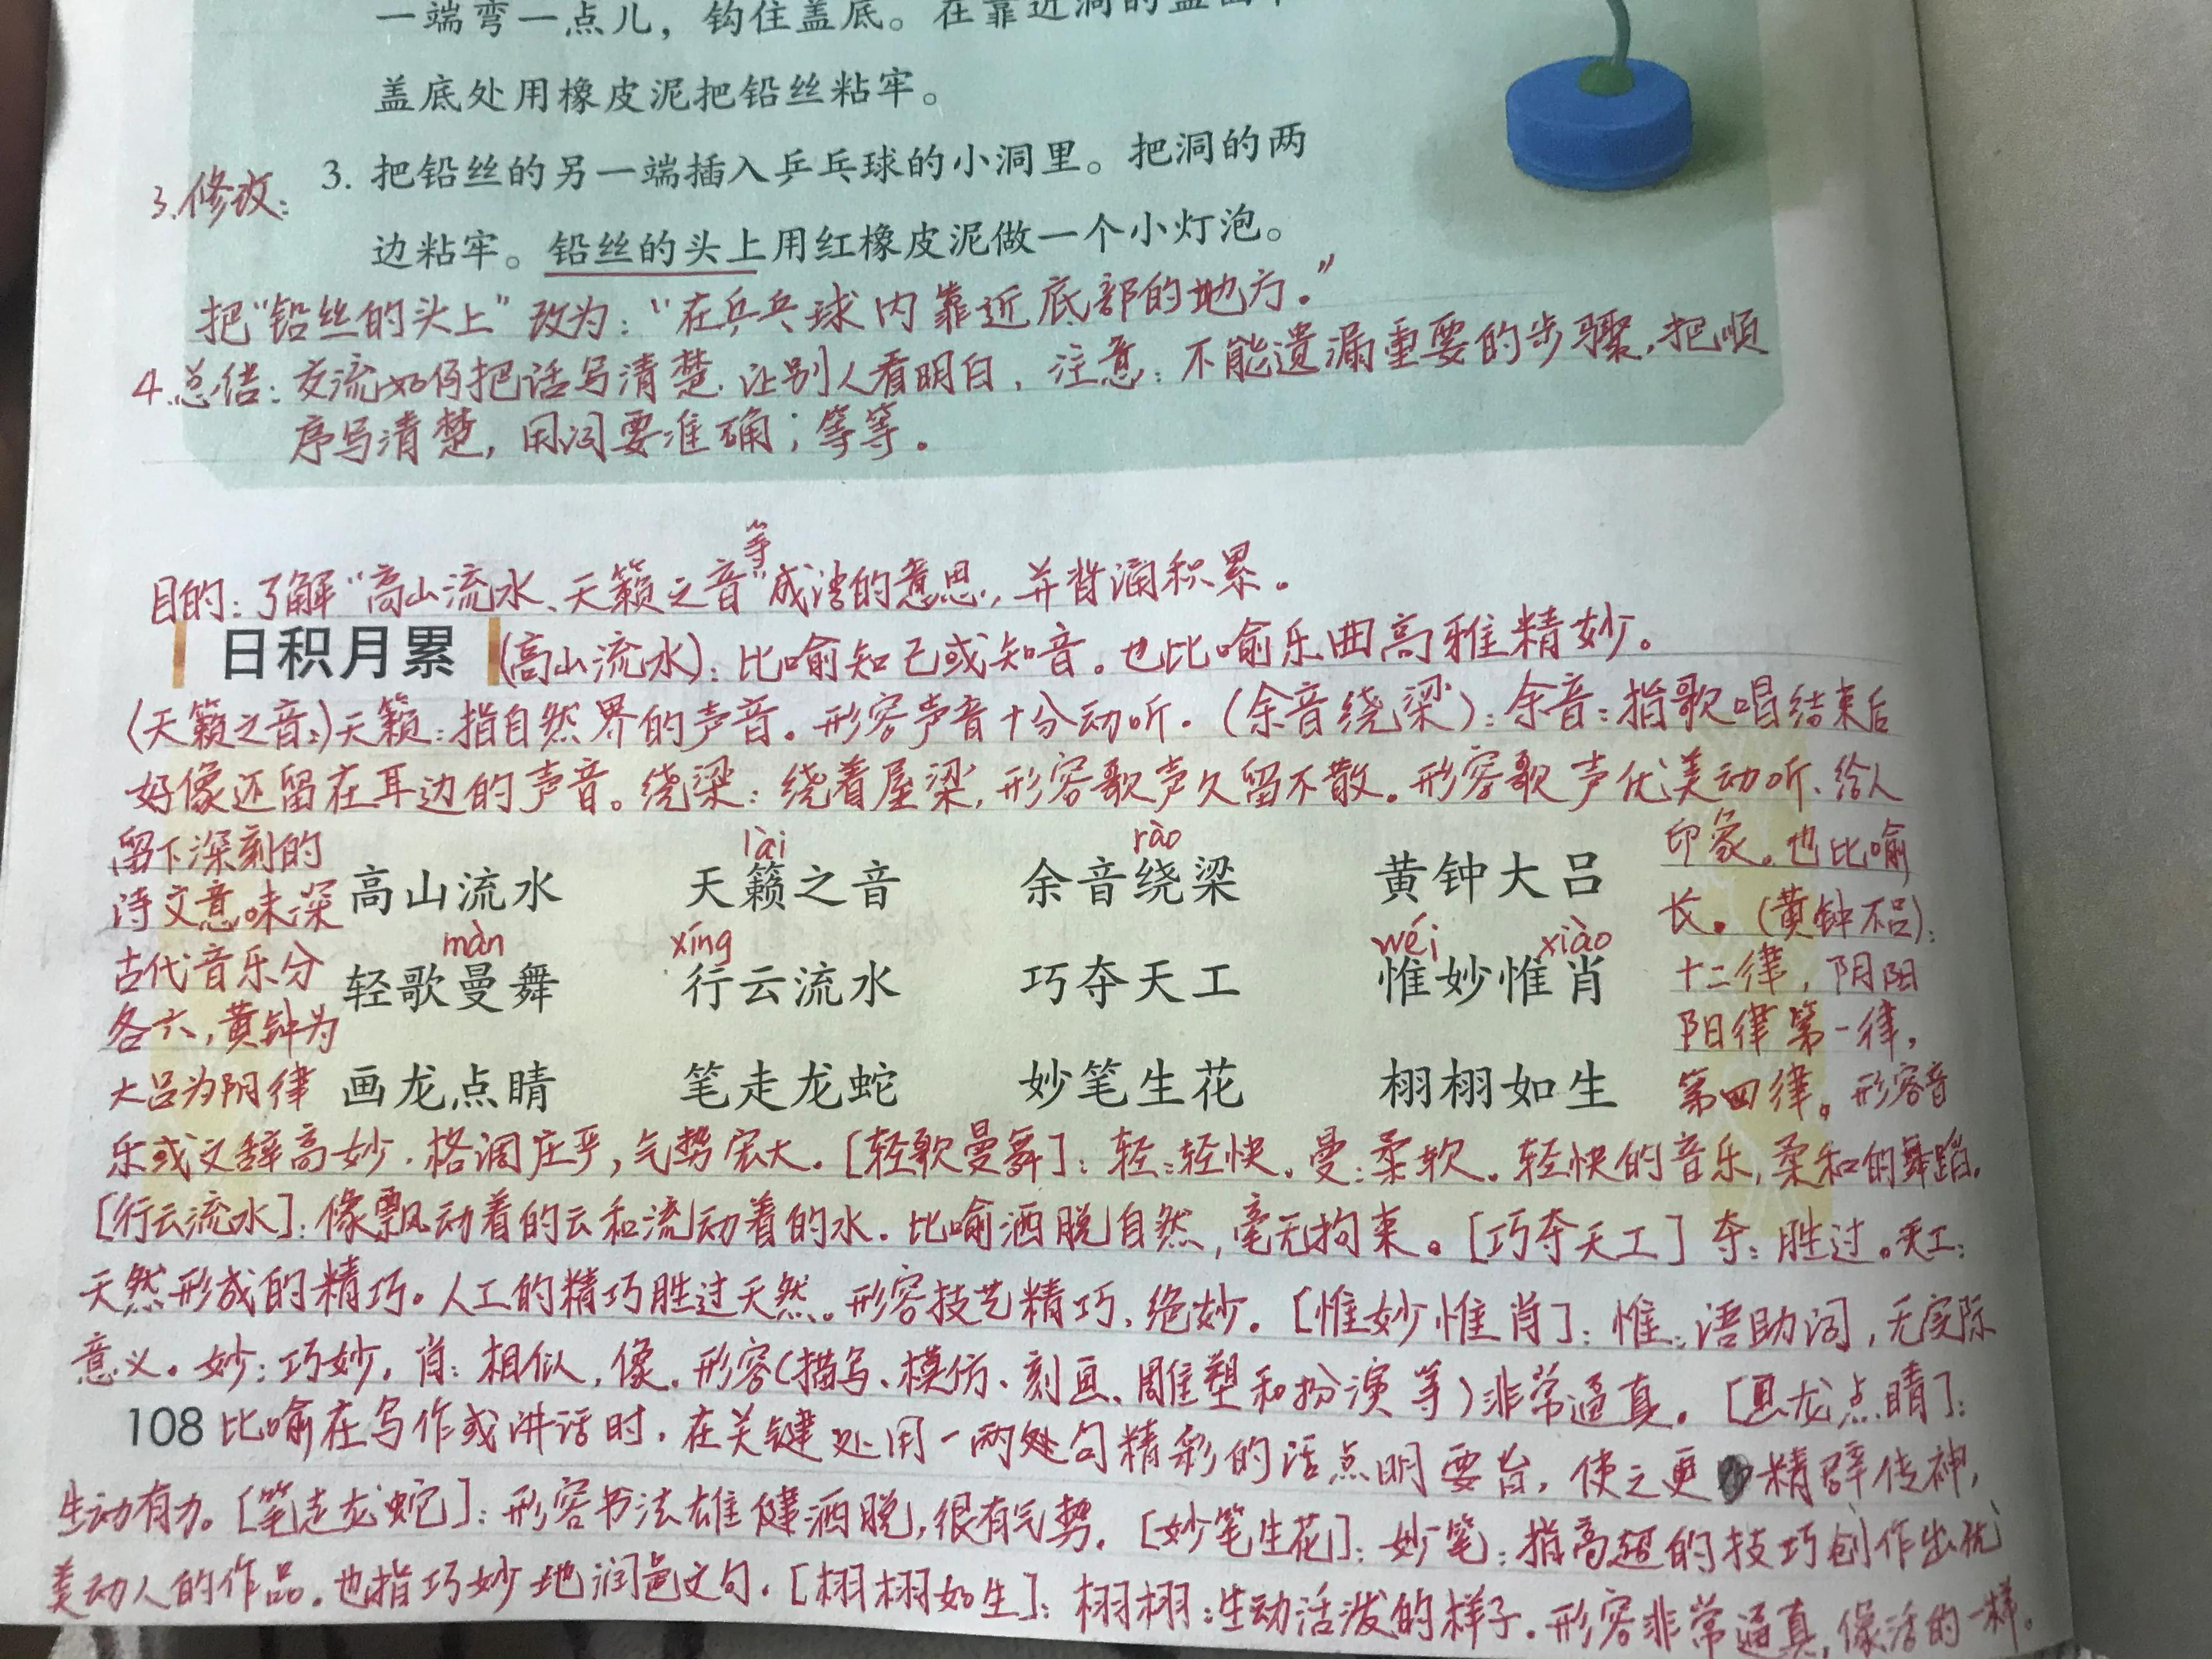 一端弯一点儿，钩住盖底。在靠近洞的盖
盖底处用橡皮泥把铅丝粘牢。
3.修改：
3. 把铅丝的另一端插入乒乓球的小洞里。把洞的两
边粘牢。铅丝的头上用红橡皮泥做一个小灯泡。
把“铅丝的头上”改为：“在乒乓球内靠近底部的地方.”
4.总结：交流如何把话写清楚,让别人看明白，注意：不能遗漏重要的步骤,把顺
序写清楚，用词要准确；等等。
等
目的：了解“高山流水、天籁之音”成语的意思,并背诵积累。
日积月累 (高山流水)：比喻知己或知音。也比喻乐曲高雅精妙。
(天籁之音:)天籁：指自然界的声音。形容声音十分动听.(余音绕梁)：余音：指歌唱结束后
好像还留在耳边的声音。绕梁：绕着屋梁,形容歌声久留不散。形容歌声优美动听、给人
留下深刻的 lài rào 印象。也比喻
高山流水 天籁之音 余音绕梁 黄钟大吕
诗文意味深 长。(黄钟大吕)：
màn xíng wéi xiào
古代音乐分 轻歌曼舞 行云流水 巧夺天工 惟妙惟肖 十二律，阴阳
各六，黄钟为 阳律第一律，
大吕为阴律 画龙点睛 笔走龙蛇 妙笔生花 栩栩如生 第四律。形容音
乐或文辞高妙.格调庄乎,气势宏大。[轻歌曼舞]：轻：轻快。曼：柔软。轻快的音乐,柔和的舞蹈.
[行云流水]：像飘动着的云和流动着的水.比喻洒脱自然,毫无拘束。[巧夺天工]夺：胜过。天工：
天然形成的精巧。人工的精巧胜过天然。形容技艺精巧、绝妙。[惟妙惟肖]：惟：语助词,无实际
意义。妙：巧妙,肖：相似,像.形容(描写、模仿、刻画、雕塑和扮演等)非常逼真。[画龙点睛]：
108 比喻在写作或讲话时,在关键处用一两处句精彩的话点明要旨,使之更精辟传神,
生动有力。[笔走龙蛇]：形容书法雄健洒脱,很有气势。[妙笔生花]：妙笔：指高超的技巧创作出优
美动人的作品。也指巧妙地润色文句.[栩栩如生]：栩栩：生动活泼的样子.形容非常逼真,像活的一样。